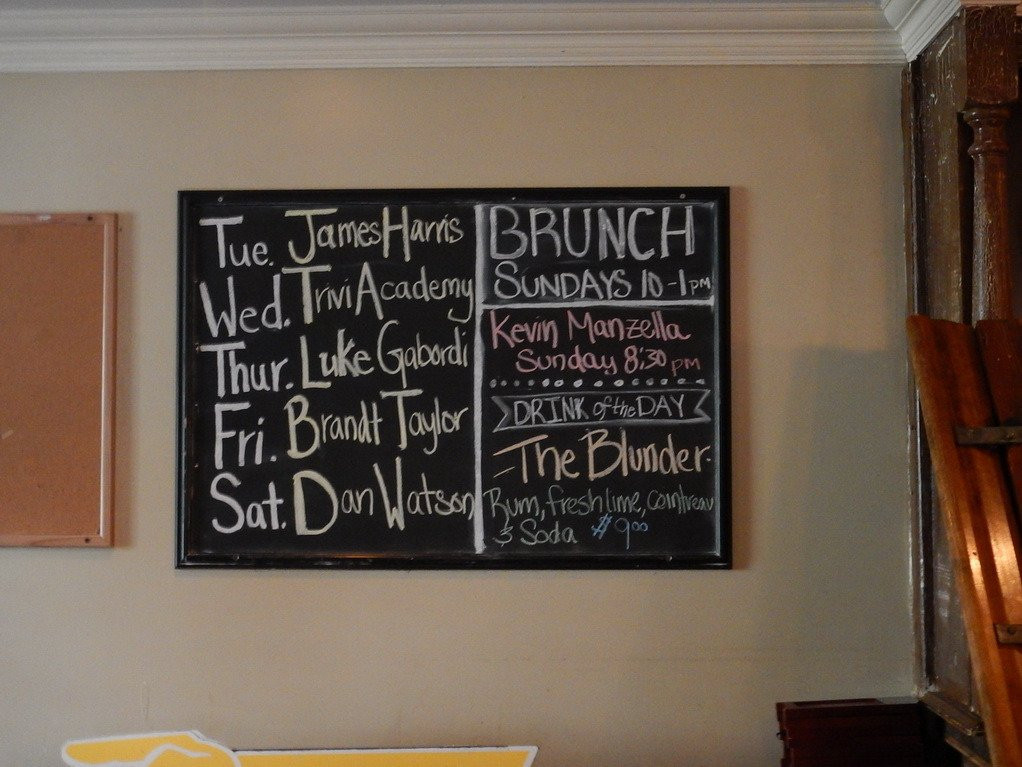 Tue. James Harris
Wed. Trivi Academy
Thur. Luke Gabordi
Fri. Brandt Taylor
Sat. Dan Watson
BRUNCH
SUNDAYS 10-1pm
Kevin Manzella
Sunday 8:30 pm
DRINK of the DAY
The Blunder
Rum, fresh lime, cointreau
& Soda $9.00